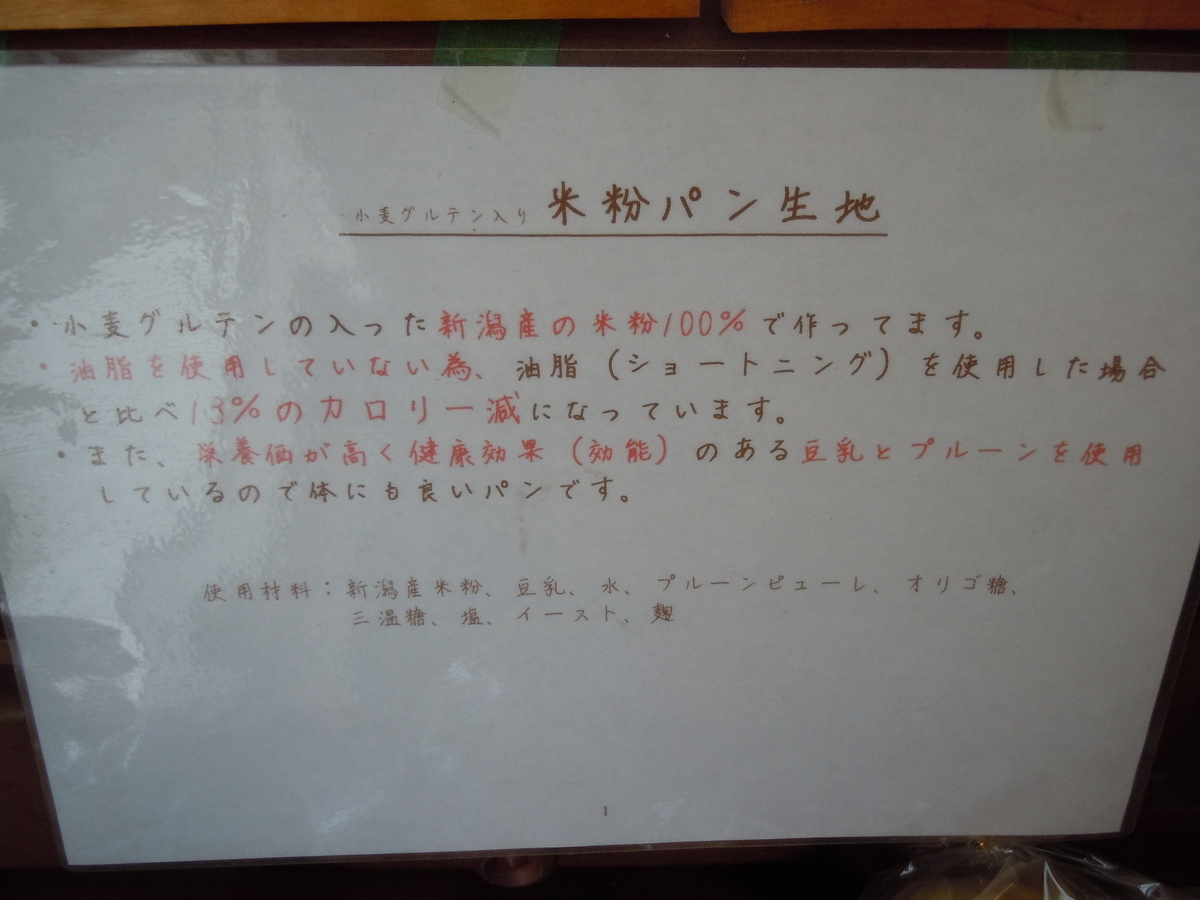 小麦グルテン入り 米粉パン生地
・小麦グルテンの入った新潟産の米粉100%で作ってます。
・油脂を使用していない為、油脂(ショートニング)を使用した場合
と比べ13%のカロリー減になっています。
・また、栄養価が高く健康効果(効能)のある豆乳とプルーンを使用
しているので体にも良いパンです。
使用材料:新潟産米粉、豆乳、水、プルーンピューレ、オリゴ糖、
三温糖、塩、イースト、麹
1